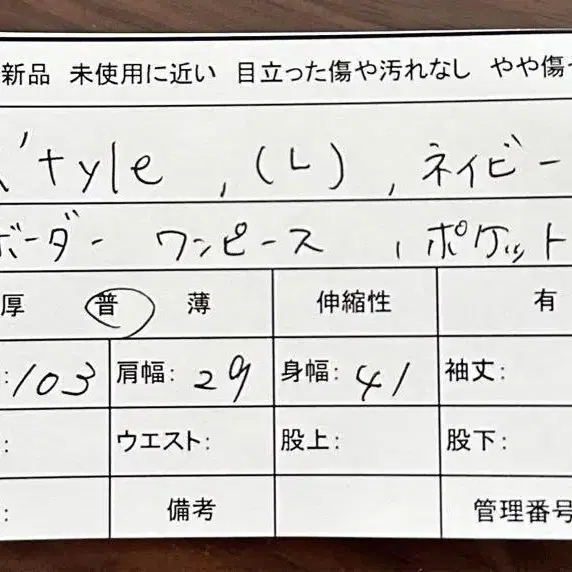 新品 未使用に近い 目立った傷や汚れなし やや傷
'tyle , (L) , ネイビー
ボーダー ワンピース , ポケット
厚 普 薄 伸縮性 有
:103 肩幅: 29 身幅: 41 袖丈:
: ウエスト: 股上: 股下:
: 備考 管理番号